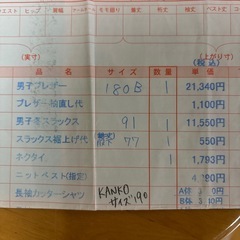 エスト ヒップ 肩幅 モモ廻り 上丈 総丈 ベスト丈
(実寸) (上がり寸)
品名 サイズ 数量 単価 (税込)
男子ブレザー 180B 1 21,340円
ブレザー袖直し代 1,100円
男子冬スラックス 91 1 11,550円
スラックス裾上げ代 股下 77 1 550円
ネクタイ 1 1,793円
ニットベスト(指定)
長袖カッターシャツ KANKO A体
サイズ190 B体